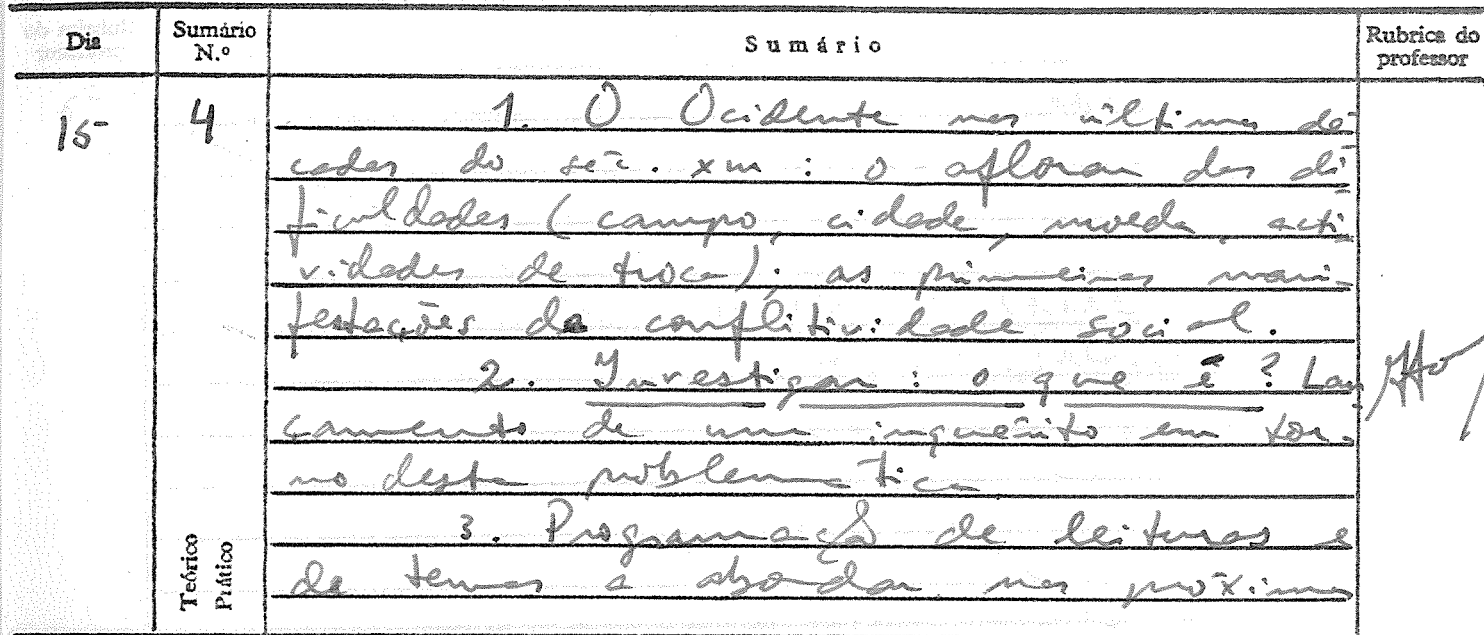 Dia Sumário N.º Sumário Rubrica do professor
15 4 1. O Ocidente nas últimas dé-
cadas do séc. XIII : o aflorar das di-
ficuldades (campo, cidade, moeda, acti-
vidades de troca); as primeiras mani-
festações da conflitividade social.
2. Investigar : o que é ? Lan
çamento de um inquérito em tor-
no desta problemática
3. Programação de leituras e
de temas a abordar nas próximas
Teórico
Prático